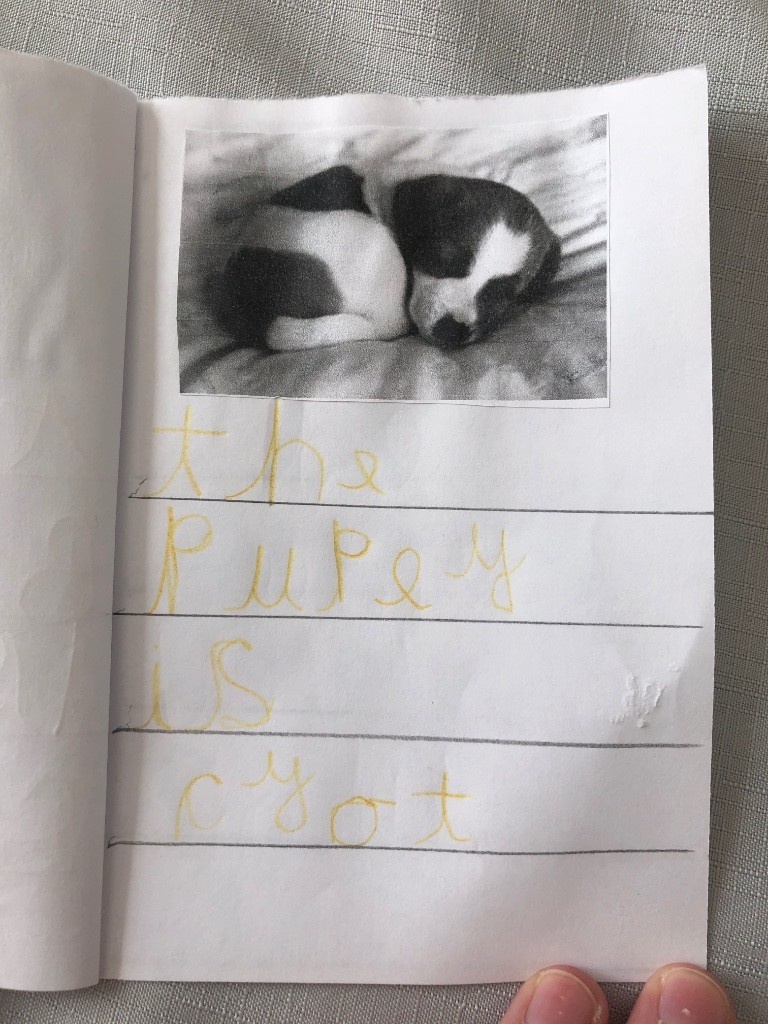 the
PuPey
is
cyot